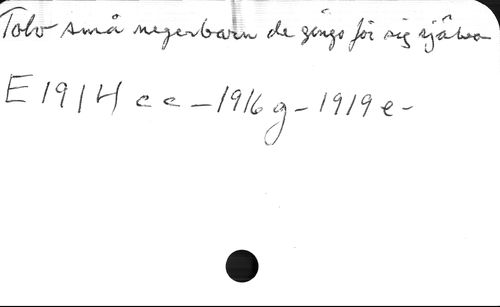 Tolv små negerbarn de gingo för sig själva
E 1914 c c - 1916 g - 1919 e -